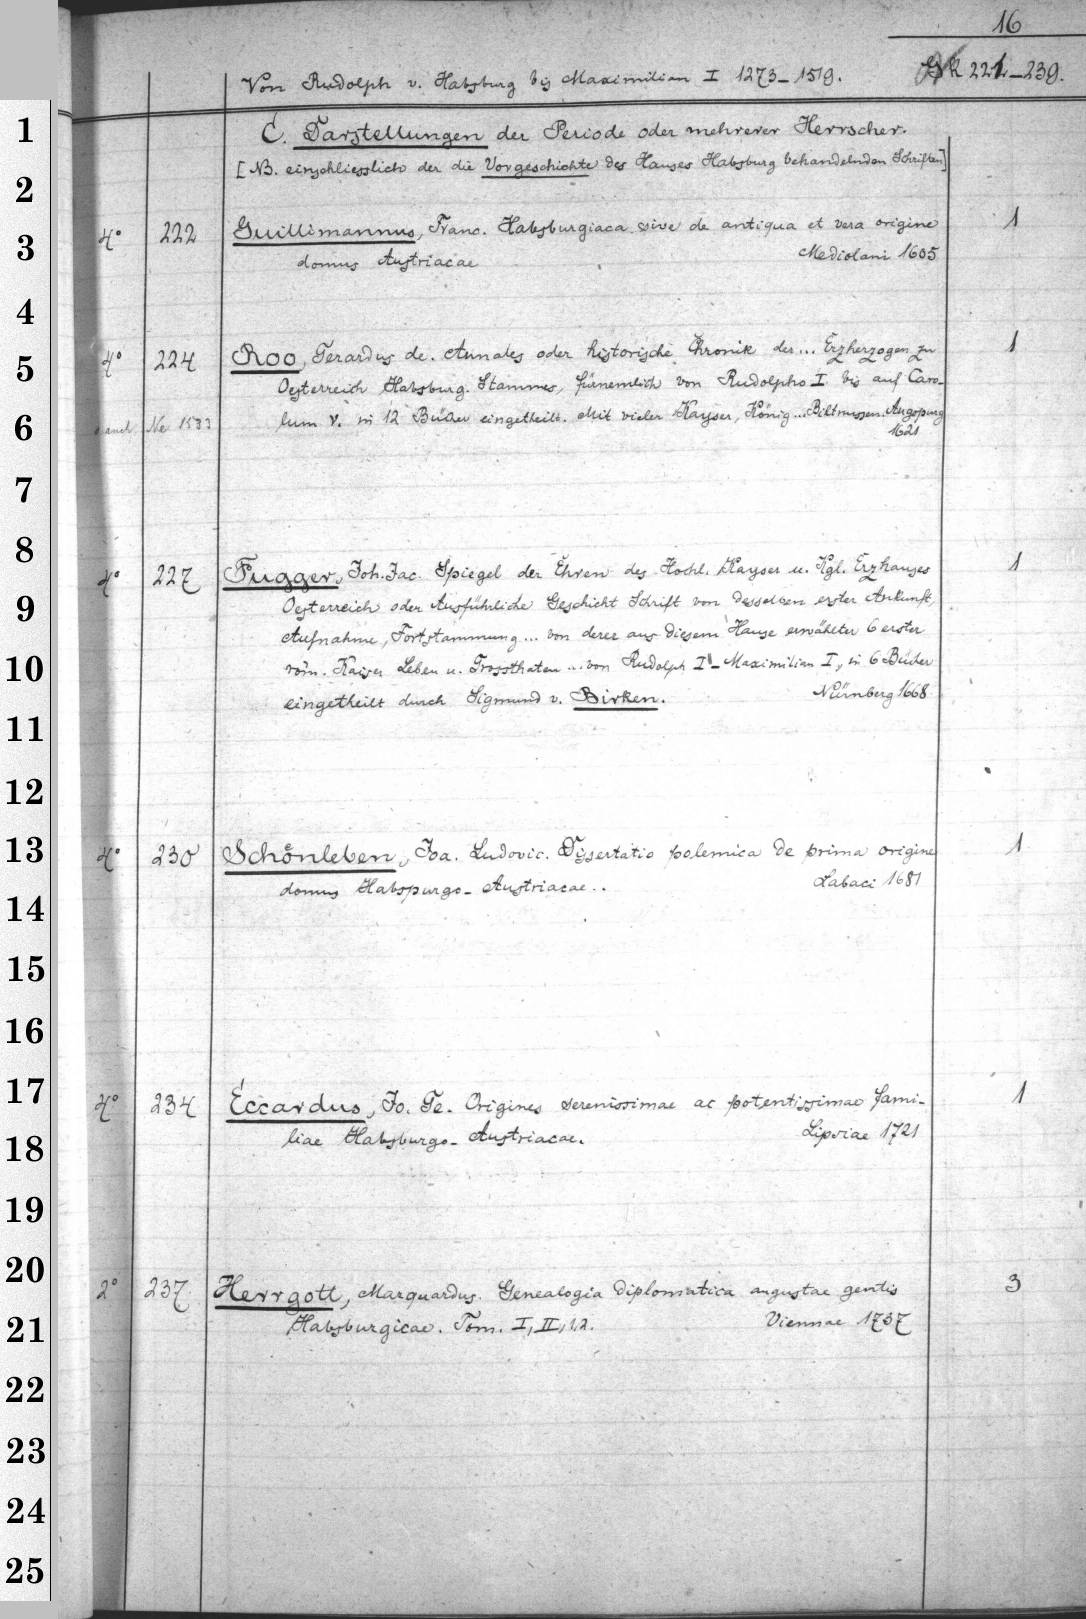 16
Von Rudolph v. Habsburg bis Maximilian I 1273-1519. Gk 221-239.
C. Darstellungen der Periode oder mehrerer Herrscher.
[NB. einschliesslich der die Vorgeschichte des Hauses Habsburg behandelnden Schriften]
4° 222 Guillimannus, Franc. Habsburgiaca sive de antiqua et vera origine 1
domus Austriacae Mediolani 1605
4° 224 Roo, Gerardus de. Annales oder historische Chronik der... Erzherzogen zu 1
Oesterreich Habsburg. Stammes, fürnemlich von Rudolpho I bis auf Caro-
lum V. in 12 Bücher eingetheilt. Mit vieler Kayser, König... Biltnussen. Augspurg
1621
Nr 1583
4° 227 Fugger, Joh. Jac. Spiegel der Ehren des Hochl. Kayser u. Kgl. Erzhauses 1
Oesterreich oder Ausführliche Geschicht Schrift von desselben erster Ankunft,
Aufnahme, Fortstammung... von derer aus diesem Hause erwählter 6 erster
röm. Kaiser Leben u. Grossthaten... von Rudolph I - Maximilian I, in 6 Bücher
eingetheilt durch Sigmund v. Birken. Nürnberg 1668
4° 230 Schönleben, Joa. Ludovic. Dissertatio polemica de prima origine 1
domus Habspurgo-Austriacae.. Labaci 1681
4° 234 Eccardus, Jo. Ge. Origines serenissimae ac potentissimae fami- 1
liae Habsburgo-Austriacae. Lipsiae 1721
2° 237 Herrgott, Marquardus. Genealogia diplomatica augustae gentis 3
Habsburgicae. Tom. I, II, 1.2. Viennae 1737
1
2
3
4
5
6
7
8
9
10
11
12
13
14
15
16
17
18
19
20
21
22
23
24
25